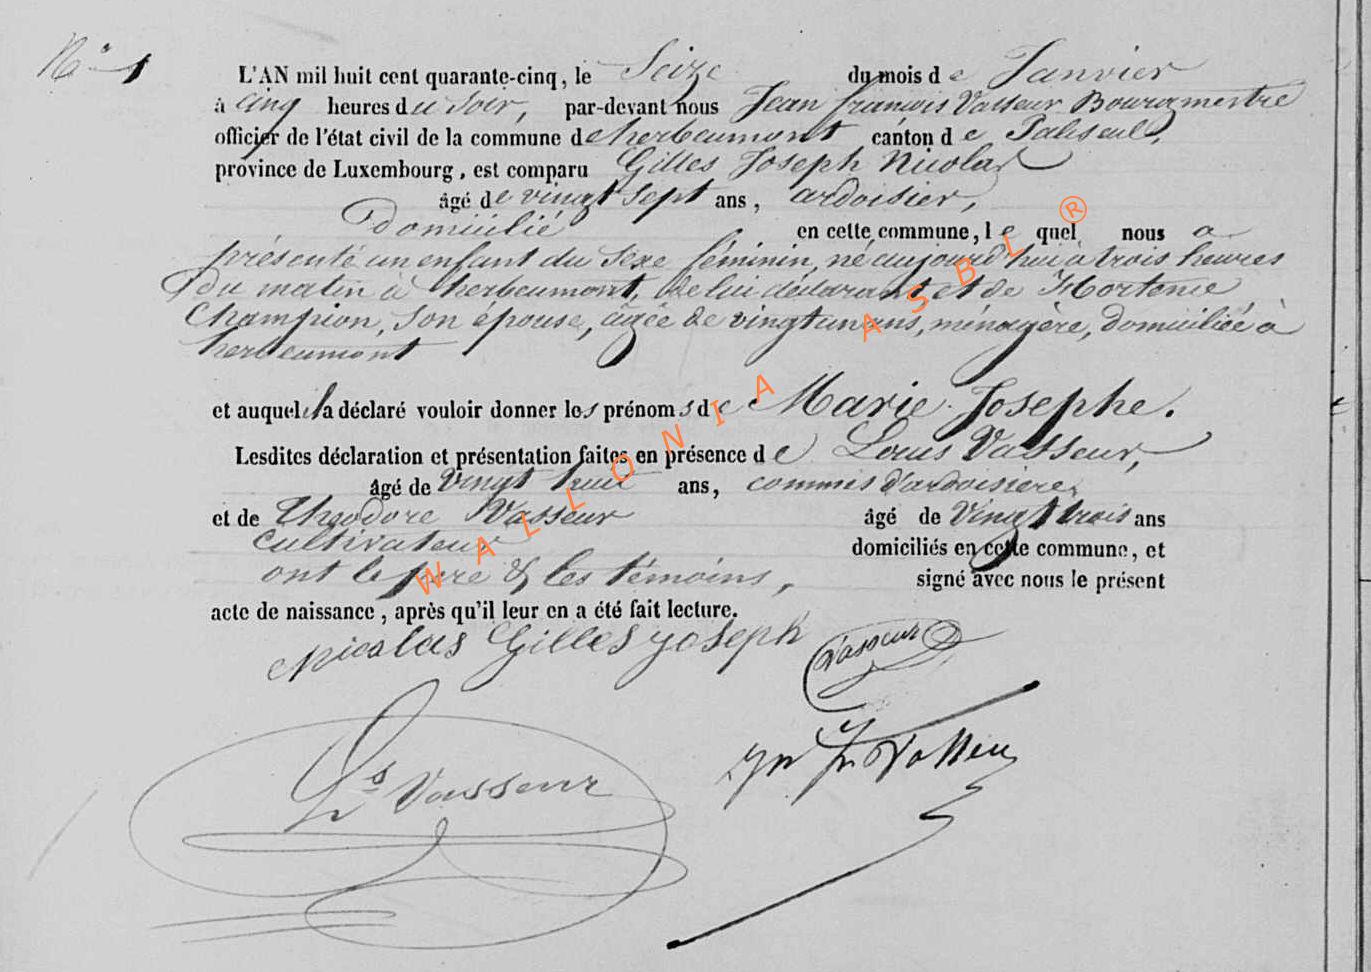 N° 1
L'AN mil huit cent quarante-cinq, le Seize du mois de Janvier
à cinq heures du soir, par-devant nous Jean françois Vasseur Bourgmestre
officier de l'état civil de la commune de herbeumont canton de Paliseul,
province de Luxembourg, est comparu Gilles Joseph Nicolas
âgé de vingt sept ans, ardoisier,
Domicilié en cette commune, le quel nous a
présenté un enfant du sexe féminin, né aujourd'hui à trois heures
Du matin à herbeumont, de lui déclarant et de Hortense
Champion, son épouse, agée de vingt un ans, ménagère, domiciliée à
herbeumont
et auquel il a déclaré vouloir donner les prénoms de Marie Josephe.
Lesdites déclaration et présentation faites en présence de Louis Vasseur,
âgé de Vingt huit ans, commis d'ardoisière,
et de Theodore Vasseur âgé de Vingt trois ans
Cultivateur domiciliés en cette commune, et
ont le père & les témoins, signé avec nous le présent
acte de naissance, après qu'il leur en a été fait lecture.
Nicolas Gilles Joseph Vasseur
Ls Vasseur
Jn Fr Vasseur
WALLONIA ASBL ®